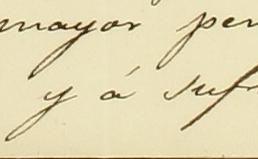 mayor per
y á suf